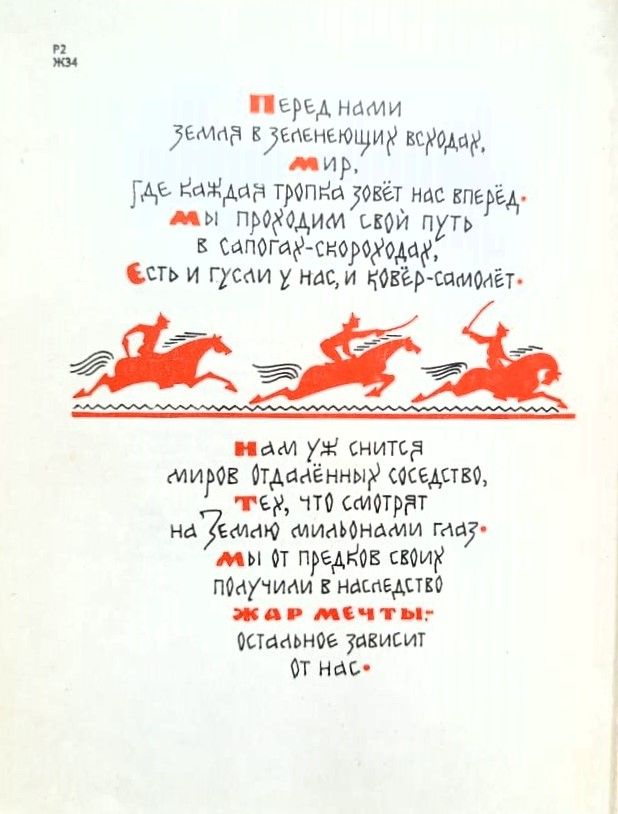 Р2
Ж34
Перед нами
земля в зеленеющих всходах,
Мир,
где каждая тропка зовёт нас вперёд.
Мы проходим свой путь
в сапогах-скороходах,
Есть и гусли у нас, и ковёр-самолёт.
Нам уж снится
миров отдалённых соседство,
Тех, что смотрят
на Землю мильонами глаз.
Мы от предков своих
получили в наследство
ЖАР МЕЧТЫ:-
остальное зависит
от нас.